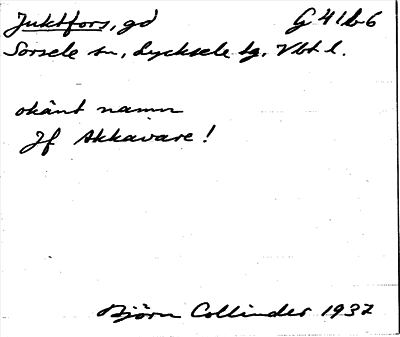 Juktfors, gd G 41b6
Sorsele sn, Lycksele tg. Vbt l.
okänt namn
Jf Akkavare!
Björn Collinder 1937